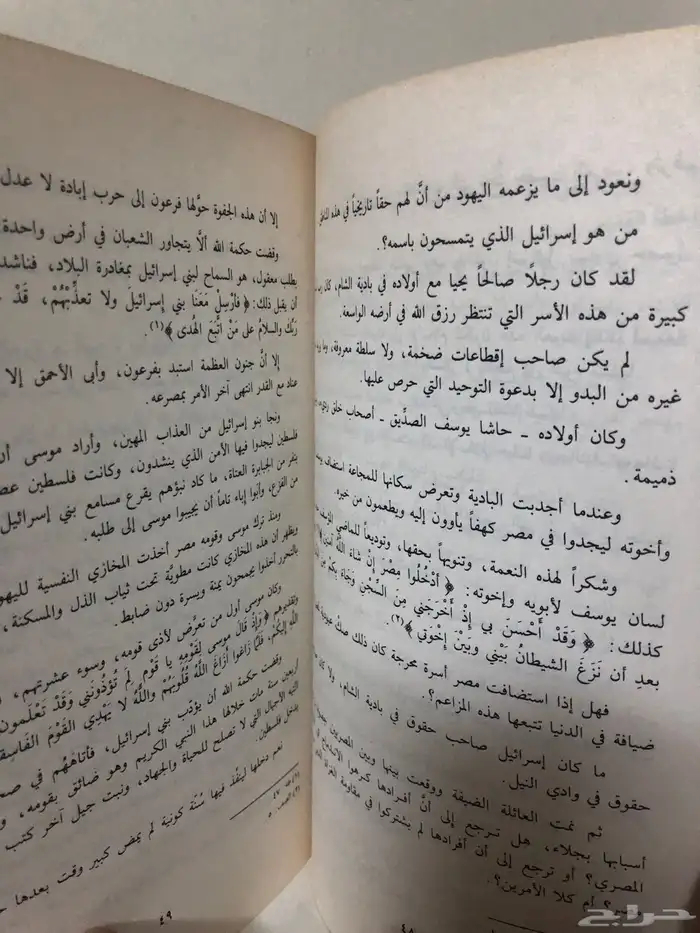 ونعود إلى ما يزعمه اليهود من أنَّ لهم حقاً تاريخياً في هذه
من هو إسرائيل الذي يتمسحون باسمه؟.
لقد كان رجلًا صالحاً يحيا مع أولاده في بادية الشام، كان
كبيرة من هذه الأسر التي تنتظر رزق الله في أرضه الواسعة.
لم يكن صاحب إقطاعات ضخمة، ولا سلطة معروفة،
غيره من البدو إلا بدعوة التوحيد التي حرص عليها.
وكان أولاده ـ حاشا يوسف الصدِّيق ـ أصحاب خلق
ذميمة.
وعندما أجدبت البادية وتعرض سكانها للمجاعة استضاف
وأخوته ليجدوا في مصر كهفاً يأوون إليه ويطعمون من خيره.
وشكراً لهذه النعمة، وتنويهاً بحقها، وتوديعاً للماضي
لسان يوسف لأبويه وإخوته: ﴿ أدْخُلُوا مِصْرَ إنْ شَاءَ اللَّهُ آمنين ﴾
كذلك: ﴿ وَقَدْ أَحْسَنَ بي إذْ أَخْرَجَني مِنَ السِّجْنِ وَجَاءَ بِكُمْ مِنَ
بعدِ أن نَزَغَ الشيطانُ بَيْني وبَيْنَ إخْوَتي ﴾(٢).
فهل إذا استضافت مصر أسرة محرجة كان ذلك صكَّ
ضيافة في الدنيا تتبعها هذه المزاعم؟.
ما كان إسرائيل صاحب حقوق في بادية الشام، ولا كان
حقوق في وادي النيل.
ثم نمت العائلة الضيفة ووقعت بينها وبين المصريين
أسبابها بجلاء، هل ترجع إلى أنَّ أفرادها كرهوا الاندماج في
المصري؟ أو ترجع إلى أن أفرادها لم يشتركوا في مقاومة
أم كلا الأمرين؟.
٤٨
إلا أن هذه الجفوة حوَّلها فرعون إلى حرب إبادة لا عدل
وقضت حكمة الله ألاَّ يتجاور الشعبان في أرض واحدة
بطلب معقول، هو السماح لبني إسرائيل بمغادرة البلاد، فناشد
أن يقبل ذلك: ﴿ فأَرْسِلْ مَعَنَا بني إسرائيلَ ولا تعذِّبْهُمْ، قَدْ
رَبِّكَ والسلامُ على مَنْ اتَّبَعَ الهُدى ﴾(١).
إلا أنَّ جنون العظمة استبد بفرعون، وأبى الأحمق إلا
عناد مع القدر انتهى آخر الأمر بمصرعه.
ونجا بنو إسرائيل من العذاب المهين، وأراد موسى أن
فلسطين ليجدوا فيها الأمن الذي ينشدون، وكانت فلسطين
بنفر من الجبابرة العتاة، ما كاد نبؤهم يقرع مسامع بني إسرائيل
من الفزع، وأبوا إباء تاماً أن يجيبوا موسى إلى طلبه.
ومنذ ترك موسى وقومه مصر أخذت المخازي النفسية
ويظهر أن هذه المخازي كانت مطويَّة تحت ثياب الذل والمسكنة،
بالتحرر أخذوا يجمحون يمنة ويسرة دون ضابط.
وكان موسى أول من تعرَّض لأذى قومه، وسوء عشرتهم،
وتقديرهم ﴿ وَإِذْ قَالَ مُوسَى لِقَوْمِهِ يا قَوْمِ لِمَ تُؤْذُونَني وَقَدْ تَعْلَمونَ
اللَّهِ إلَيْكُم، فَلَمَّا زَاغُوا أزَاغَ اللَّهُ قُلُوبَهُمْ واللَّهُ لا يَهْدِي القَوْمَ الفَاسِقين
وقضت حكمة الله أن يؤدِّب بني إسرائيل، فأتاههُم في
أربعين سنة مات خلالها هذا النبي الكريم وهو ضائق بقومه،
التيه الأجيال التي لا تصلح للحياة والجهاد، ونبت جيل آخر كتب
يدخل فلسطين.
نعم دخلها لينفِّذ فيها سُنَّة كونية لم يمض كبير وقت بعدها
(١) طه: ٤٧
(٢) الصف: ٥
٤٩
حراج